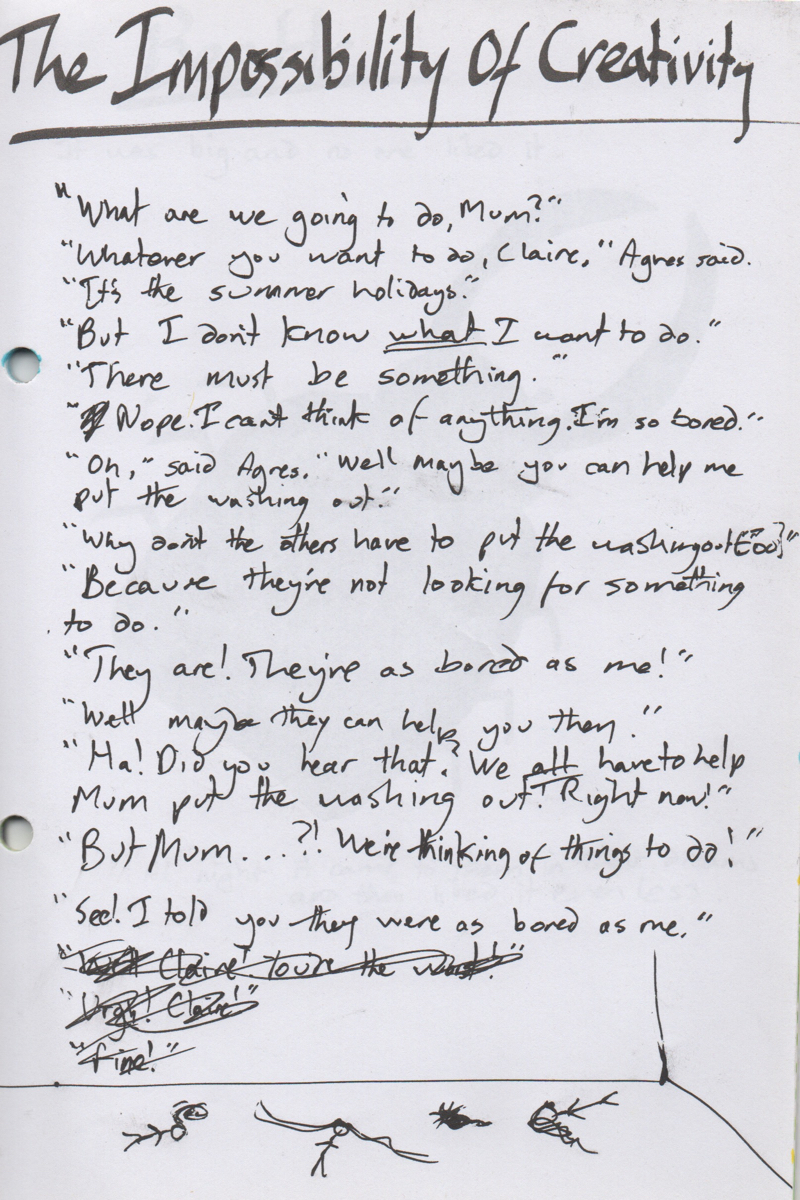 The Impossibility Of Creativity
"What are we going to do, Mum?"
"Whatever you want to do, Claire," Agnes said.
"It's the summer holidays."
"But I don't know what I want to do."
"There must be something."
"Nope. I can't think of anything. I'm so bored."
"Oh," said Agnes. "Well maybe you can help me
put the washing out."
"Why don't the others have to put the washing out too?"
"Because they're not looking for something
to do."
"They are! They're as bored as me!"
"Well maybe they can help you then."
"Ha! Did you hear that? We all have to help
Mum put the washing out! Right now!"
"But Mum...?! We're thinking of things to do!"
"See! I told you they were as bored as me."
Claire! You're the worst!"
"Urgh! Claire!"
"Fine!"